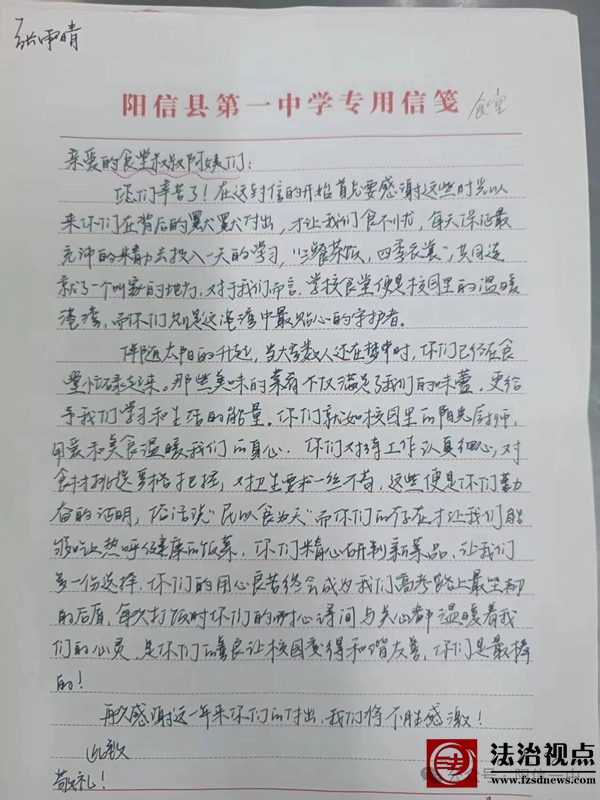 张雨晴
阳信县第一中学专用信笺
食堂
亲爱的食堂叔叔阿姨们：
你们辛苦了！在这封信的开始首先要感谢这些时光以
来你们在背后的默默付出，才让我们食不忧，每天保证最
充沛的精力去投入一天的学习，“三餐茶饭，四季衣裳”，共同造
就了一个叫家的地方，对于我们而言，学校食堂便是校园里的温暖
港湾，而你们则是这港湾中最贴心的守护者。
伴随太阳的升起，当大多数人还在梦中时，你们已经在食
堂忙碌起来。那些美味的菜肴不仅满足了我们的味蕾，更给
予我们学习和生活的能量。你们就如校园里的阳光厨师，
用爱和美食温暖我们的身心。你们对待工作认真细心，对
食材挑选严格把握，对卫生要求一丝不苟，这些便是你们勤
奋的证明，俗话说“民以食为天”而你们的存在才让我们能
够吃上热呼健康的饭菜。你们精心研制新菜品，让我们
多一份选择，你们的用心良苦终会成为我们高考路上最坚韧
的后盾，每次打饭时你们的耐心询问与关心都温暖着我
们的心灵，是你们的善良让校园变得和谐友善，你们是最棒
的！
再次感谢这一年来你们的付出，我们将不胜感激！
此致
敬礼！
公众号·阳信一中
法治视点
www.fzsdnews.com